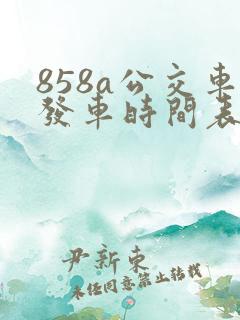 858a公交車
發車時間表
尹新東
未经同意禁止转载